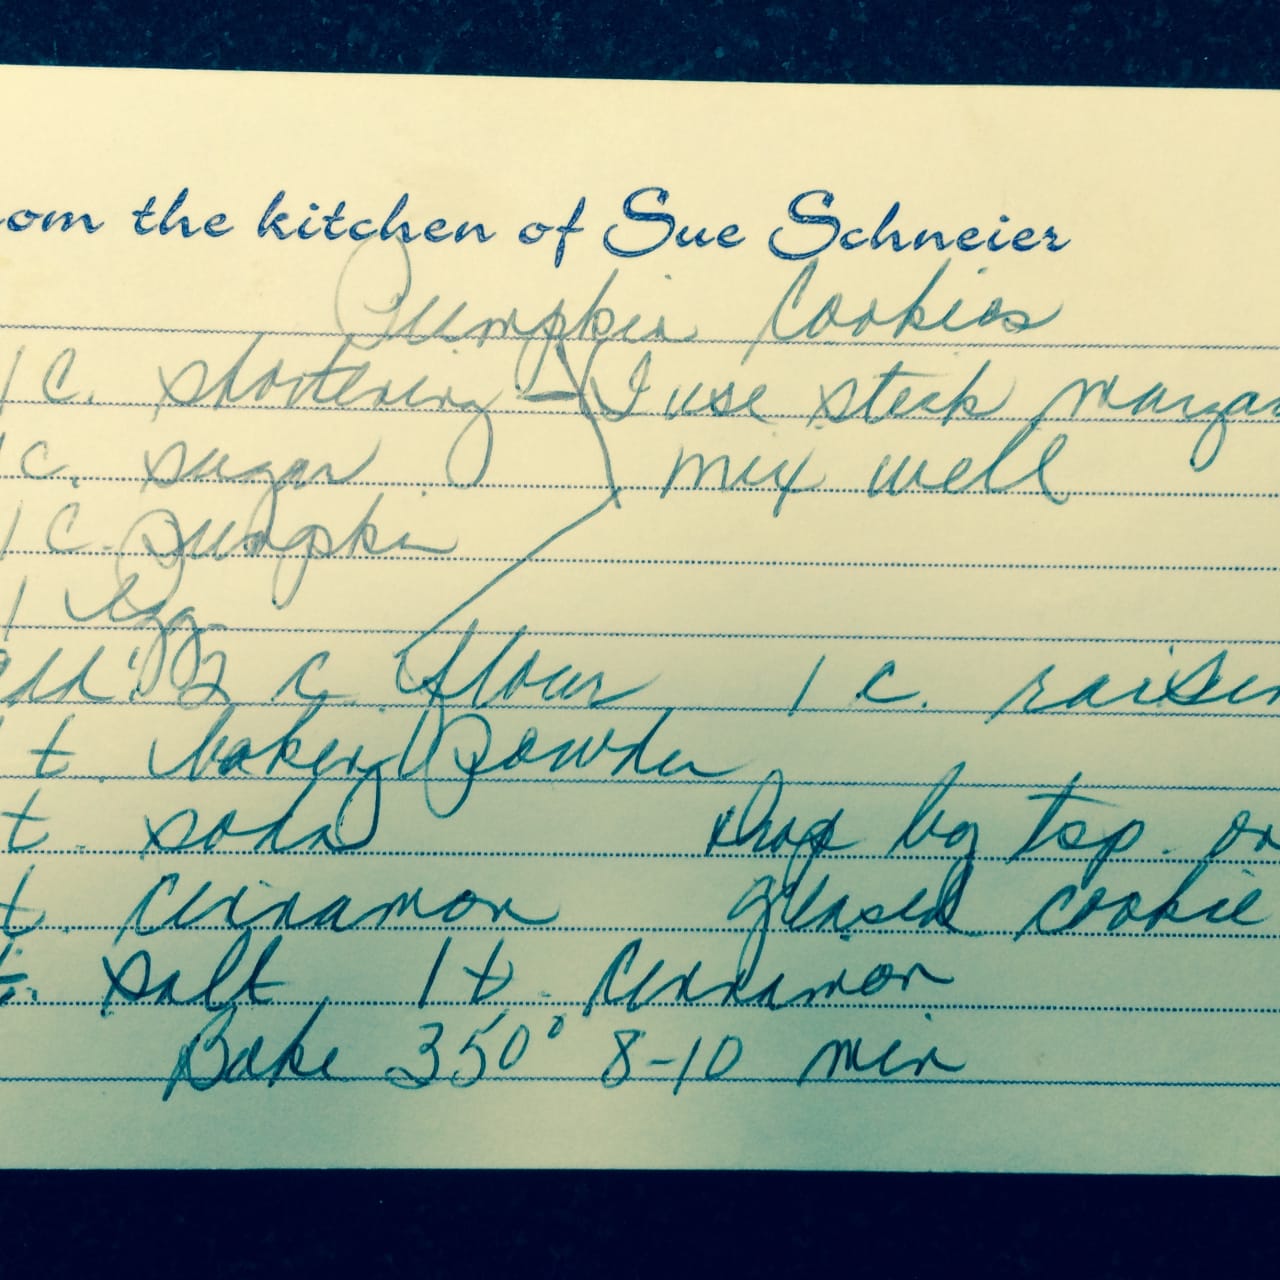 om the kitchen of Sue Schneier
Pumpkin Cookies
1 C. shortening - I use stick margar
1 c. sugar mix well
1 C. Pumpkin
1 egg
add: 2 c. flour 1 c. raisin
t. baking Powder
t. soda drop by tsp. on
t. cinnamon greased cookie
t. salt 1 t. cinnamon
Bake 350° 8-10 min